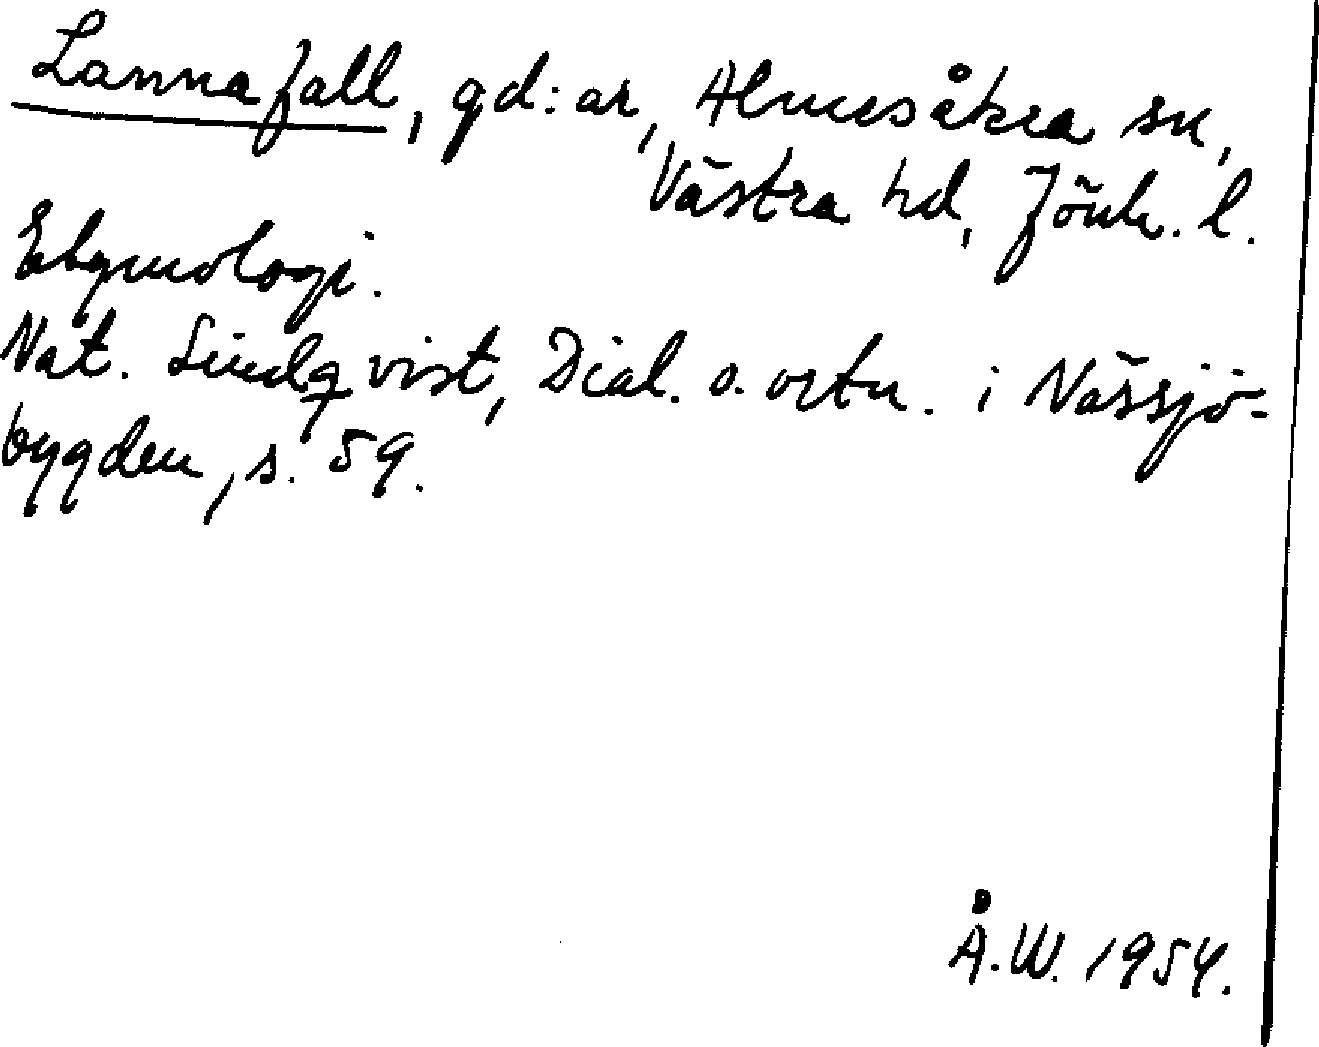 Lannafall, gd:ar, Almesåkra sn,
Västra hd, Jönk. l.
Etymologi.
Nat. Lindqvist, Dial. o. ortn. i Nässjö-
bygden, s. 59.
Å.W. 1954.